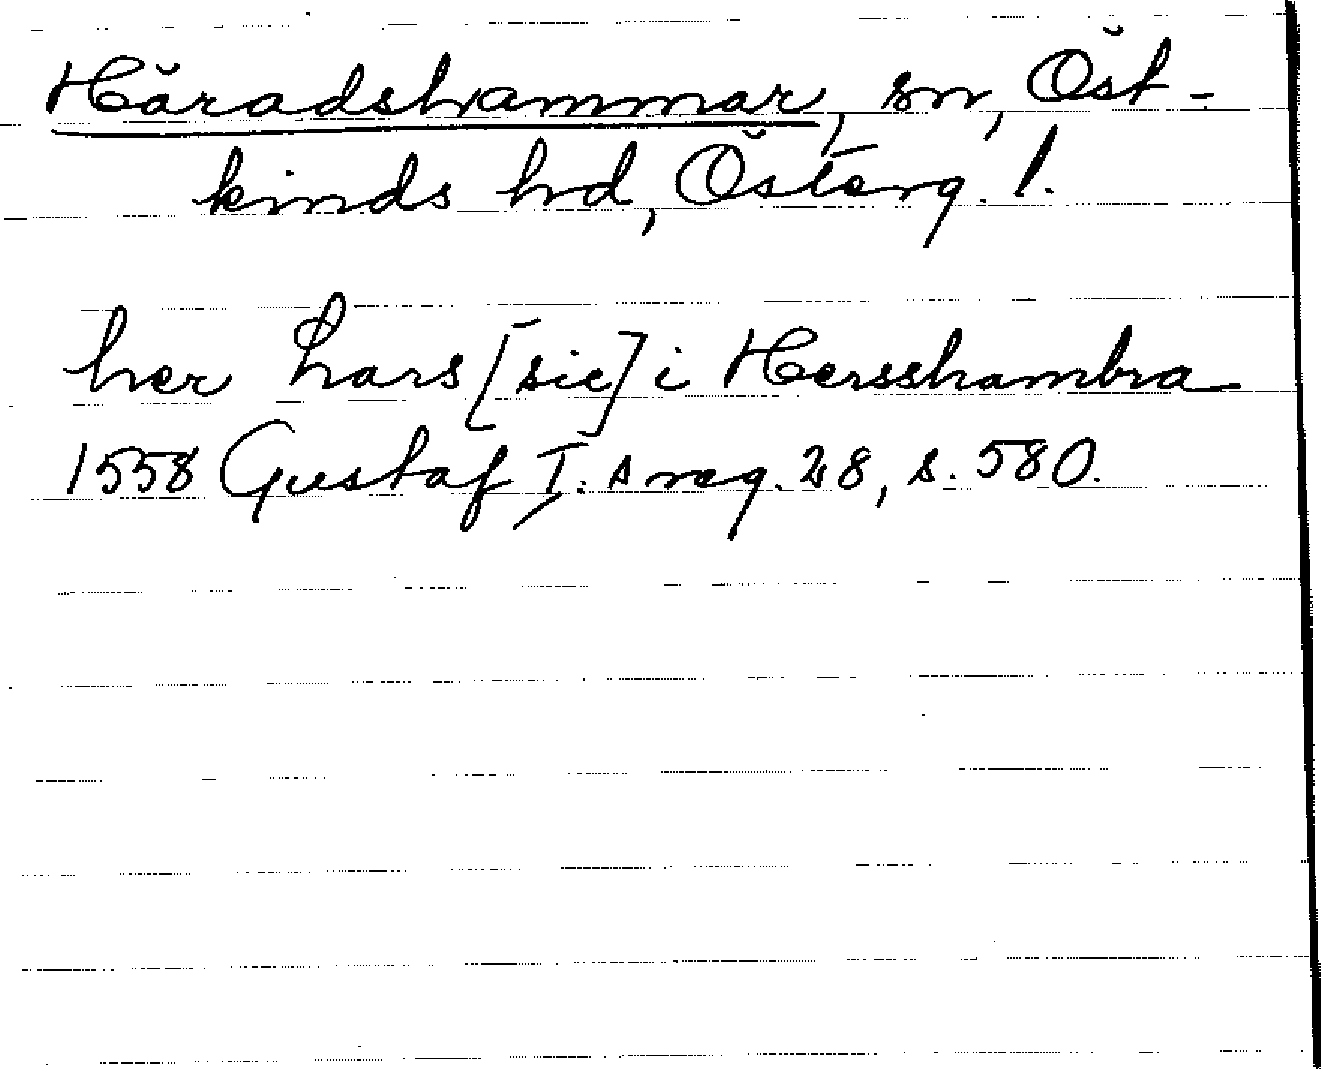 Häradshammar, sn, Öst-
kinds hd, Österg. l.
her hars [sic] i Hersshambra
1558 Gustaf I:s reg. 28, s. 580.